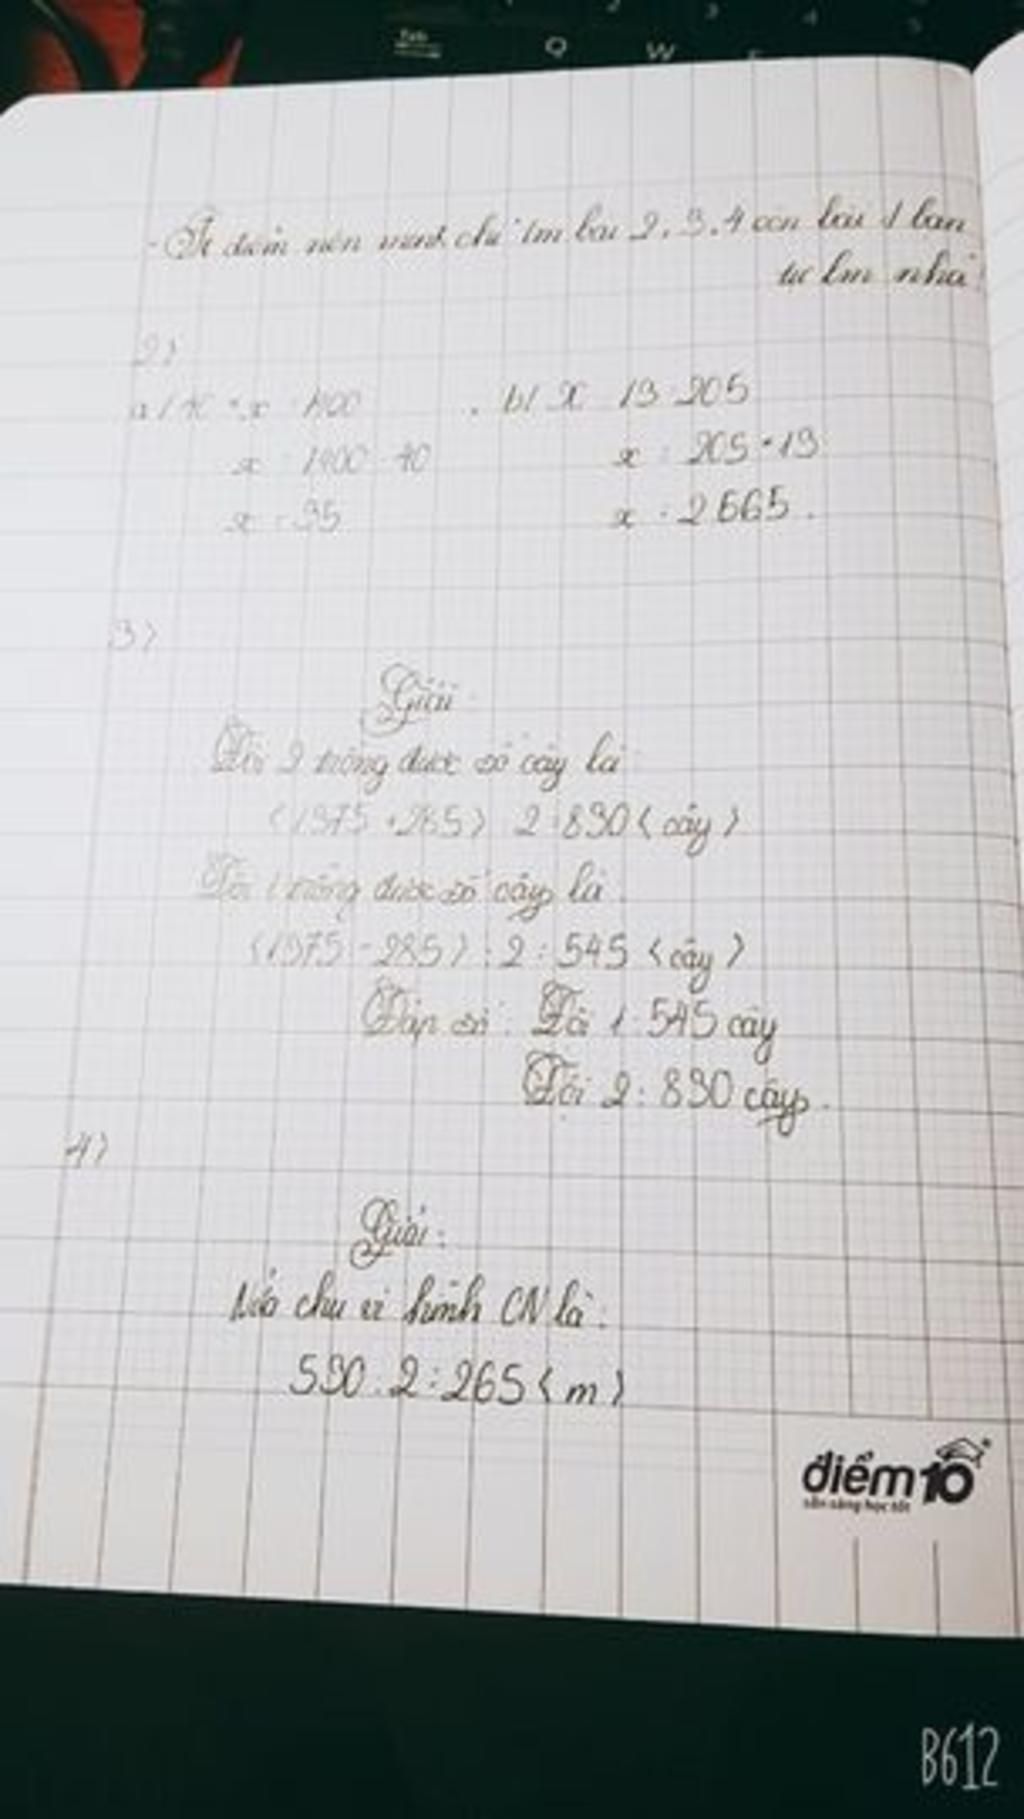 Tab Q W
- Ít điểm nên mình chỉ lm bài 2, 3, 4 còn bài 1 bạn
tự lm nha
2)
a) 40 * x = 1400 b) x : 13 = 205
x = 1400 : 40 x = 205 * 13
x = 35 x = 2665.
3)
Giải
Đội 2 trồng được số cây là
(1375 + 285) : 2 = 830 (cây)
Đội 1 trồng được số cây là
(1375 - 285) : 2 = 545 (cây)
Đáp số: Đội 1: 545 cây
Đội 2: 830 cây.
4)
Giải:
Nửa chu vi hình CN là:
530 : 2 = 265 (m)
điểm 10
sẵn sàng học tốt
B612